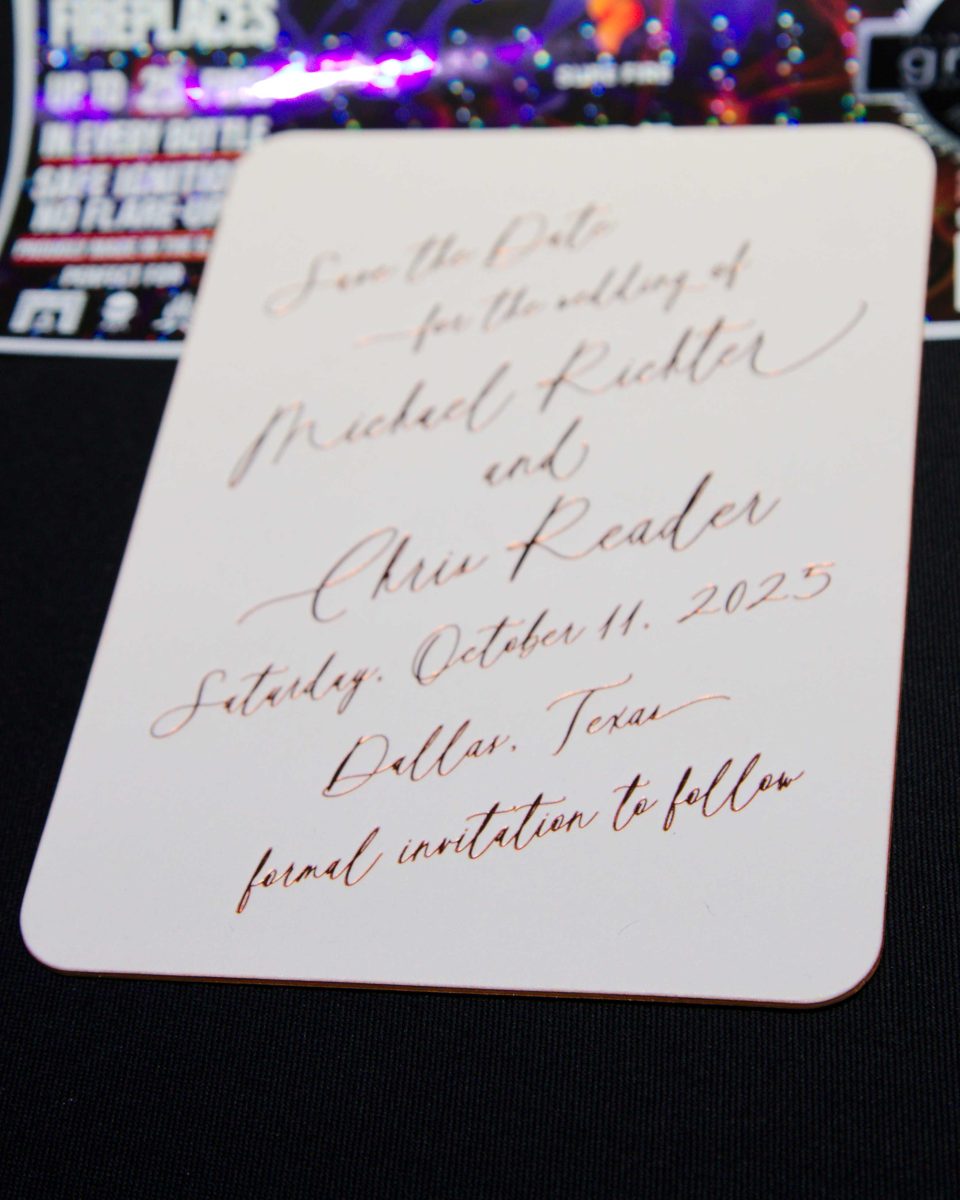 FIREPLACES
UP TO 25
IN EVERY BOTTLE
SAFE
NO FLARE-U
PERFECT FOR
gr
Save the Date
for the wedding of
Michael Richter
and
Chris Reader
Saturday, October 11, 2025
Dallas, Texas
formal invitation to follow